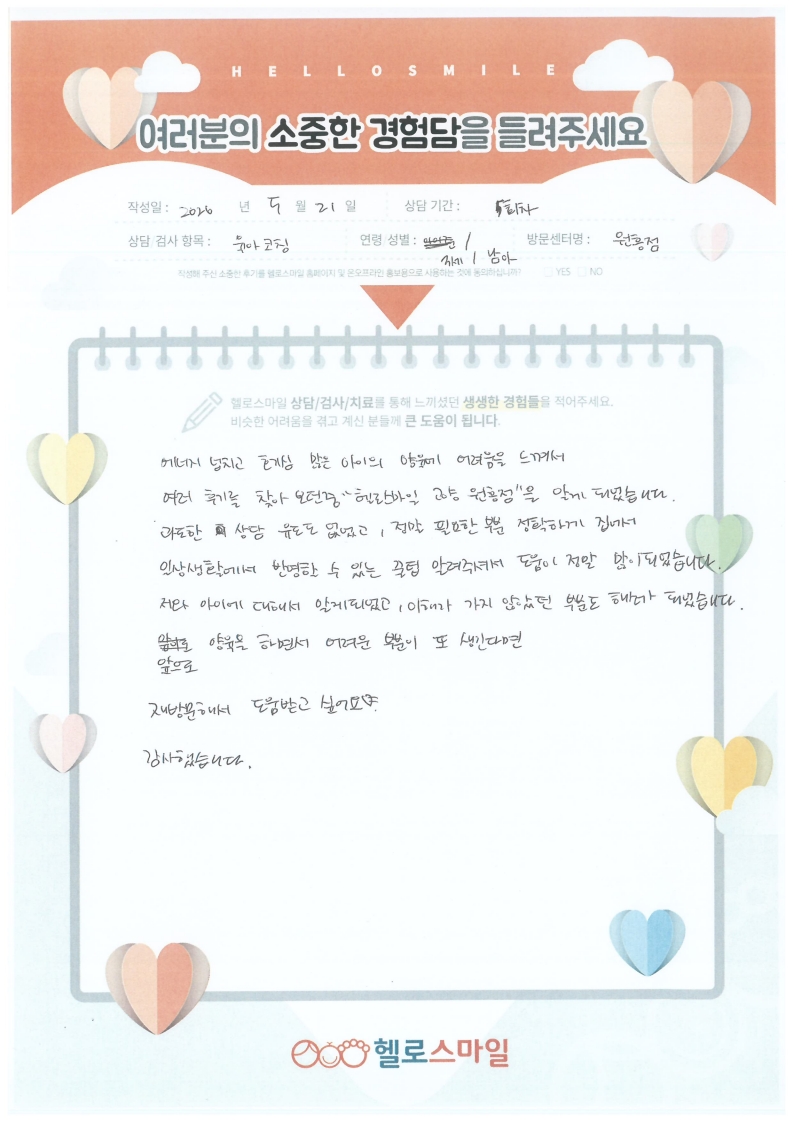 HELLOSMILE
여러분의 소중한 경험담을 들려주세요
작성일 : 2026 년 5 월 21 일 상담 기간 : 5회차
상담 검사 항목 : 육아코칭 연령 성별 : / 방문센터명 : 원흥점
7세 / 남아
작성해 주신 소중한 후기를 헬로스마일 홈페이지 및 온오프라인 홍보용으로 사용하는 것에 동의하십니까? YES NO
헬로스마일 상담/검사/치료를 통해 느끼셨던 생생한 경험들을 적어주세요.
비슷한 어려움을 겪고 계신 분들께 큰 도움이 됩니다.
에너지 넘치고 호기심 많은 아이의 양육에 어려움을 느껴서
여러 후기를 찾아 보던중 "헬로스마일 고양 원흥점"을 알게 되었습니다.
과도한 상담 유도도 없었고, 정말 필요한 부분 정확하게 집어서
일상생활에서 반영할 수 있는 꿀팁 알려주셔서 도움이 정말 많이되었습니다.
저와 아이에 대해서 알게되었고, 이해가 가지 않았던 부분도 해소가 되었습니다.
양육을 하면서 어려운 부분이 또 생긴다면
앞으로
재방문해서 도움받고 싶어요.
감사했습니다.
헬로스마일